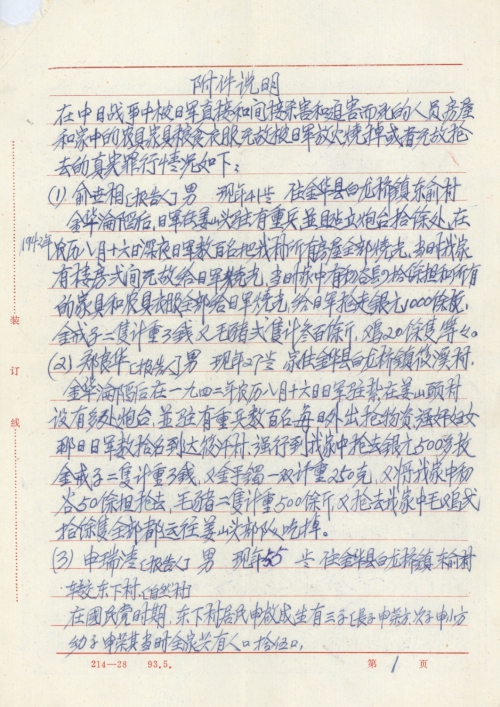 附件说明
在中日战争中被日军直接和间接杀害和迫害而死的人员房屋
和家中的农具家具粮食衣服无故被日军放火烧掉或者无故抢
去的真实罪行情况如下：
(1) 俞世相[报告人] 男 现年41岁 住金华县白龙桥镇东俞村
金华沦陷后,日军在姜山头驻有重兵並且建立炮台拾余处、在
1942年
农历八月十六日深夜日军数百名把我村所有房屋全部烧光,当时我家
有楼房弍间无故给日军烧光,当时家中有粮谷拾余担和所有
的家具和农具衣服全部给日军烧光,给日军抢走银元1000余枚,
金戒子二隻计重3钱,又毛猪弍隻计叁百余斤,鸡20余隻等々。
(2) 郑良华[报告人] 男 现年27岁 家住金华县白龙桥镇後溪村.
金华沦陷后在一九四二年农历八月十六日日军驻紮在姜山頭村
设有多处炮台,並驻有重兵数百名每日外出抢物资,强奸妇女
那日日军数拾名到达後溪村,强行到我家中抢去银元500多枚
金戒子二隻计重3錢,又金手镯一双计重250克,又将我家中
谷50余担抢去,毛猪二隻计重500余斤,又抢去我家中毛鸡弍
拾余隻全部都运往姜山头部队吃掉。
(3) 申瑞湾[报告人] 男 现年55岁 住金华县白龙桥鎮东俞村
转东下村.[自然村]
在國民党时期,东下村居民申放成生有三子[長子申荣六次子申小方
幼子申荣其当时全家共有人口拾伍口,
装
订
线
214—28 93.5.
第 1 页